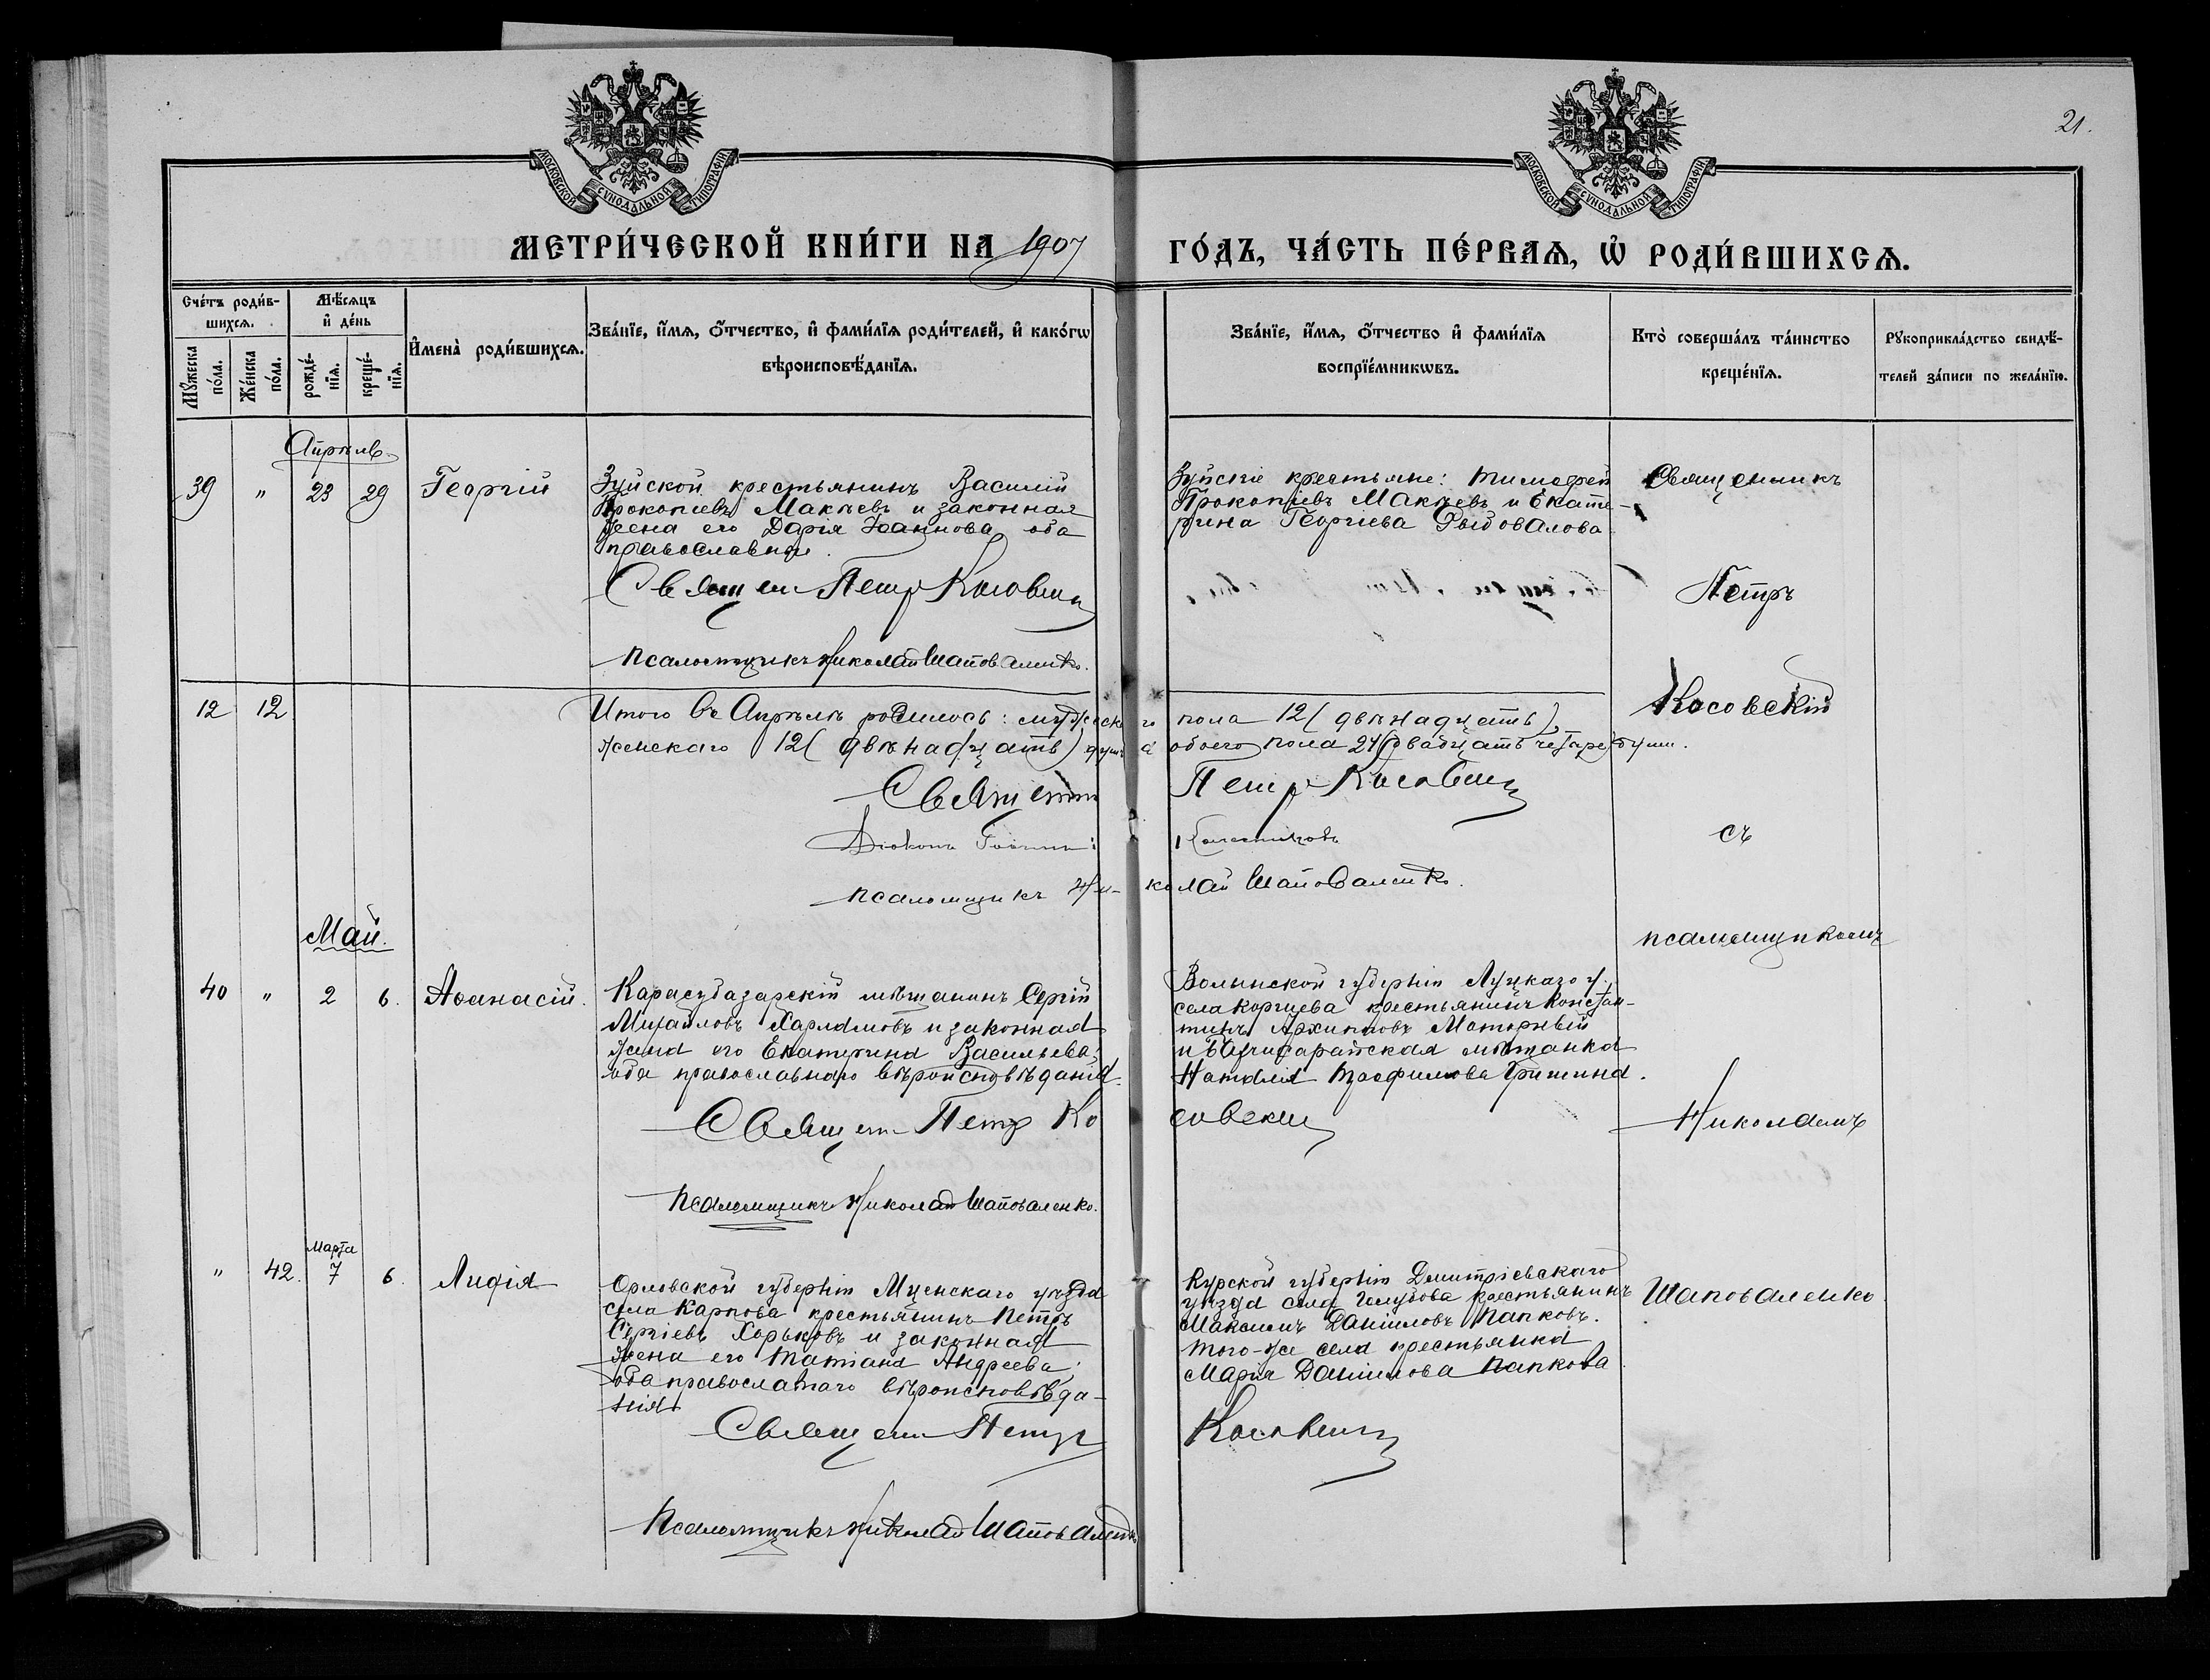 21.
МОСКОВСКОЙ СѴНОДАЛЬНОЙ ТИПОГРАФІИ
МОСКОВСКОЙ СѴНОДАЛЬНОЙ ТИПОГРАФІИ
МЕТРИ́ЧЕСКОЙ КНИ́ГИ НА 1907 ГО́ДЪ, ЧА́СТЬ ПЕ́РВАѦ, Ѡ҆ РОДИ́ВШИХСѦ.
Сче́тъ роди́в-
шихсѧ.
Мꙋ́жеска по́ла.
Же́нска по́ла.
Мѣ́сѧцъ
и҆ де́нь
рожде́-
нїѧ.
креще́-
нїѧ.
И҆мена̀ роди́вшихсѧ.
Зва́нїе, и҆́мѧ, ѻ҆́тчество, и҆ фами́лїѧ роди́телей, и҆ како́гѡ
вѣроисповѣ́данїѧ.
Зва́нїе, и҆́мѧ, ѻ҆́тчество и҆ фами́лїѧ
воспрїе́мникѡвъ.
Кто̀ соверша́лъ та́инство
креще́нїѧ.
Рꙋкоприкла́дство свидѣ́-
телей за́писи по жела́нїю.
Апрѣль
39 " 23 29 Георгій
Зуйской крестьянинъ Василій
Прокопіевъ Макѣевъ и законная
жена его Дарія Іоаннова оба
православные.
Священ Петр Косовский
псаломщикъ Николай Шаповаленко.
Зуйскіе крестьяне: Тимофей
Прокопіевъ Макѣевъ и Екате-
рина Георгіева
Священникъ
Петръ
Косовскій
съ
псаломщикомъ
Николаемъ
Шаповаленко
12 12
Итого въ Апрѣлѣ родилось: мужского пола 12 (двѣнадцать),
женскаго 12 (двѣнадцать) а обоего пола 24 (двадцать четыре) души.
Священ Петр Косовский
Діаконъ Іоаннъ
псаломщикъ Николай Шаповаленко.
Май.
40 " 2 6. Аѳанасій.
Карасубазарскій мѣщанинъ Сергій
Михайловъ Харламовъ и законная
жена его Екатерина Васильева;
оба православнаго вѣроисповѣданія.
Священ Петр Косовский
псаломщикъ Николай Шаповаленко.
Волынской губерніи Луцкаго у.
села Коршева крестьянинъ Констан-
тинъ Архиповъ Моторный
и Бахчисарайская мѣщанка
Наталія Трофимова Гришина.
Марта
" 42. 7 6. Лидія
Орловской губерніи Мценскаго уѣзда
села Карпова крестьянинъ Петръ
Сергіевъ Хорьковъ и законная
жена его Татіана Андреева;
оба православнаго вѣроисповѣда-
нія
Священ Петр Косовский
Псаломщикъ Николай Шаповаленко
Курской губерніи Дмитріевскаго
уѣзда села Голубова крестьянинъ
Максимъ Даніиловъ Папковъ.
того-же села крестьянка
Марія Даніилова Папкова